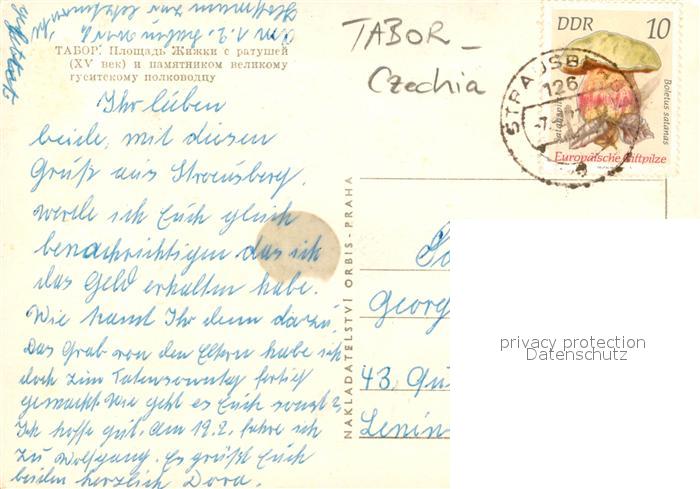 TABOR –
Czechia
DDR 10
STRAUSBERG
126
Satanspilz
Boletus satanas
Europäische Giftpilze
ТАБОР. Площадь Жижки с ратушей
(XV век) и памятником великому
гуситскому полководцу
Ihr lieben
beide, mit diesen
Gruß aus Strausberg.
werde ich Euch gleich
benachrichtigen das ich
das Geld erhalten habe.
Wie kamt Ihr denn dazu?
Das Grab von den Eltern habe ich
doch zum Totensonntag fertig
gemacht. Wie geht es Euch sonst?
Ich hoffe gut, am 19.2. fahre ich
zu Wolfgang. Es grüßt Euch
beiden herzlich Dora.
NAKLADATELSTVÍ ORBIS - PRAHA
Georg
43. Gu
Lenin
privacy protection
Datenschutz